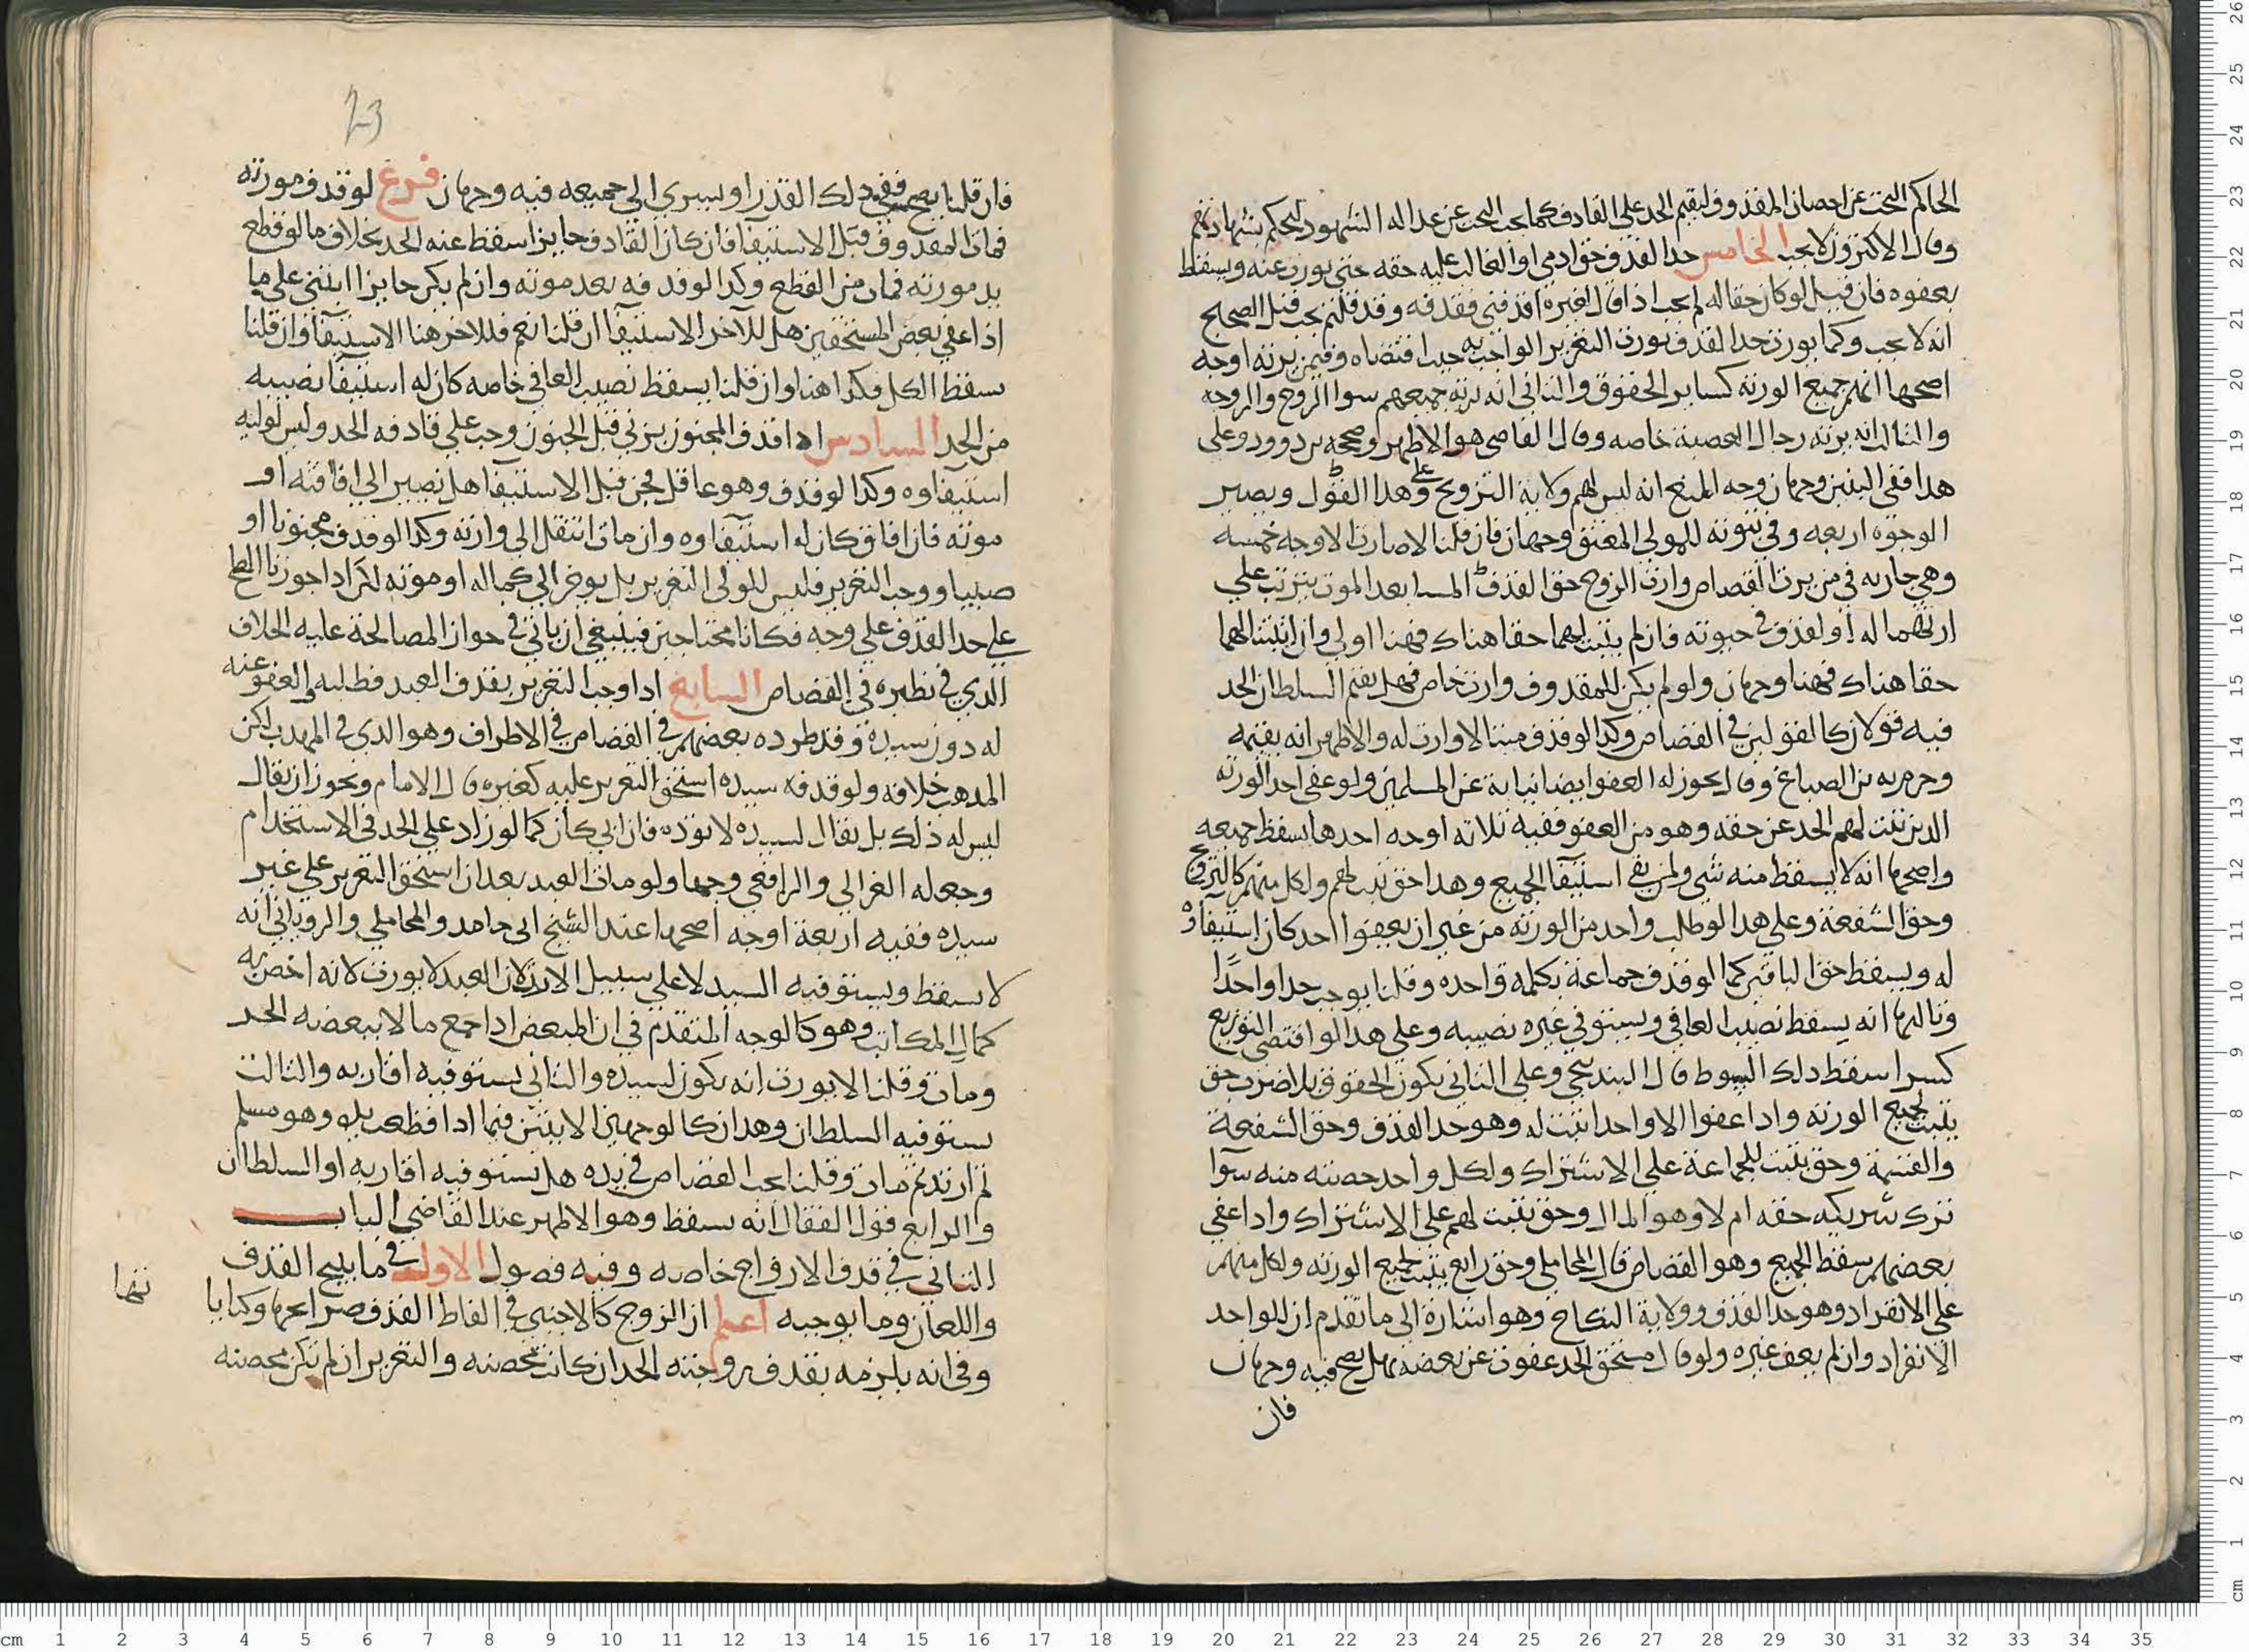 الحاكم البحث عن احصان المقذوف ليقيم الحد على القاذف كما يجب البحث عن عداله الشهود ليحكم بشهادتهم
وقال الاكثرون لا يجب الخامس حد القذف حق ادمي او الغالب عليه حقه حتى يورث عنه ويسقط
بعفوه فان قيل لو كان حقا له لم يجب اذا قال لغيره اقذفني فقذفه وقد قلتم يجب قيل الصحيح
انه لا يجب وكما يورث حد القذف يورث التعزير الواجب به حيث اقتضاه وفيمن يرثه اوجه
اصحها انهم جميع الورثه كساير الحقوق والثاني انه يرثه جميعهم سوا الزوج والزوجه
والثالث انه يرثه رجال العصبة خاصه وقال القاضي هو الاظهر وصححه بن دوورد وعلى
هذا ففي البنين وجهان وجه المنع انه ليس لهم ولاية التزويج وعلى هذا القول ويصير
الوجوه اربعه وفي ثبوته للمولى المعتق وجهان فان قلنا لا صارت الاوجه خمسه
وهي جاريه في من يرث القصاص وارث الزوج حق القذف المسا بعد الموت يترتب على
ارثهما له لو لقذف في حيوته فان لم يثبت لهما حقا هناك فهنا اولى وان اثبتنا لهما
حقا هناك فهنا وجهان ولو لم يكن للمقذوف وارث خاص فهل يقيم السلطان الحد
فيه قولان كالقولين في القصاص وكذا لو قذف ميتا لا وارث له والاظهر انه يقيمه
وجزم به بن الصباغ وقال يجوز له العفو ايضا نيابة عن المسلمين ولو عفى احد الورثه
الذين ثبت لهم الحد عن حقه وهو من العفو ففيه ثلاثه اوجه احدها يسقط جميعه
واصحها انه لا يسقط منه شي ولمن بقي استيفا الجميع وهذا حق ثبت لهم ولكل منهم كالتزويج
وحق الشفعة وعلى هذا لو طلب واحد من الورثة من غير ان يعفوا احد كان استيفاوه
له ويسقط حق الباقين كما لو قذف جماعة بكلمه واحده وقلنا يوجب حدا واحدًا
وثالثها انه يسقط نصيب العافي ويستوفي غيره نصيبه وعلى هذا لو اقتضى التوزيع
كسرا سقط ذلك السوط قال البندنيجي وعلى الثاني يكون الحقوق بلا ضرب حق
يثبت لجميع الورثه واذا عفوا الا واحدا ثبت له وهو حد القذف وحق الشفعة
والقسمة وحق يثبت للجماعة على الاشتراك ولكل واحد حصته منه سوآ
ترك شريكه حقه ام لا وهو المال وحق يثبت لهم على الاشتراك واذا عفى
بعضهم سقط الجميع وهو القصاص قال المحاملي وحق رابع يثبت لجميع الورثه ولكل منهم
على الانفراد وهو حد القذف وولاية النكاح وهو اشارة الى ما تقدم ان للواحد
الانفراد وان لم يعف غيره ولو قال مستحق الحد عفوت عن بعضه فهل يصح فيه وجهان
فان
فان قلنا يصح ففي ذلك القدر او يسري الى جميعه فيه وجهان فرع لو قذف مورثه
فمات المقذوف قبل الاستيفا فان كان القاذف حايزا سقط عنه الحد بخلاف ما لو قطع
يد مورثه فمات من القطع وكذا لو قذفه بعد موته وان لم يكن حايزا انبنى على ما
اذا عفى بعض المستحقين هل للآخر الاستيفآ ان قلنا نعم فللاخر هنا الاستيفآ وان قلنا
سقط الكل فكذا هنا وان قلنا يسقط نصيب العافي خاصه كان له استيفآ نصيبه
من الحد السادس اذا قذف المجنون بزنى قبل الجنون وجب على قاذفه الحد وليس لوليه
استيفاوه وكذا لو قذف وهو عاقل فجن قبل الاستيفا هل نصبر الى افاقته او
موته فان افاق كان له استيفاوه وان مات انتقل الى وارثه وكذا لو قذف مجنونا او
صبيا ووجب التعزير فليس للولي التعزير بل يوخر الى كماله او موته لكن اذا جوزنا الصلح
على حد القذف على وجه فكانا محتاجين فينبغي ان ياتي في جواز المصالحة عليه الخلاف
الذي في نظيره في القصاص السابع اذا وجب التعزير بقذف العبد فطلبه والعفو عنه
له دون سيده وقد طرده بعضهم في القصاص في الاطراف وهو الذي في المهذب لكن
المذهب خلافه ولو قذفه سيده استحق التعزير عليه كغيره قال الامام ويجوز ان يقال
ليس له ذلك بل يقال لسيده لا توذه فان ابى كان كما لو زاد على الحد في الاستخدام
وجعله الغزالي والرافعي وجها ولو مات العبد بعد ان استحق التعزير على غير
سيده ففيه اربعة اوجه اصحها عند الشيخ ابى حامد والمحاملي والروياني انه
لا يسقط ويستوفيه السيد لا على سبيل الارث لان العبد لا يورث لانه اخص به
كمال المكاتب وهو كالوجه المتقدم في ان المبعض اذا جمع مالا ببعضه الحر
ومات وقلنا لا يورث انه يكون لسيده والثاني يستوفيه اقاربه والثالث
يستوفيه السلطان وهذان كالوجهين الاتيين فيما اذا قطعت يده وهو مسلم
ثم ارتد ثم مات وقلنا يجب القصاص في يده هل يستوفيه اقاربه او السلطان
والرابع قول القفال انه يسقط وهو الاظهر عند القاضي الباب
الثاني في قذف الازواج خاصه وفيه فصول الاول في ما يبيح القذف
واللعان وما يوجبه اعلم ان الزوج كالاجنبي في الفاظ القذف صرايحها وكنايا
تها
وفي انه يلزمه بقذف زوجته الحد ان كانت محصنه والتعزير ان لم تكن محصنه